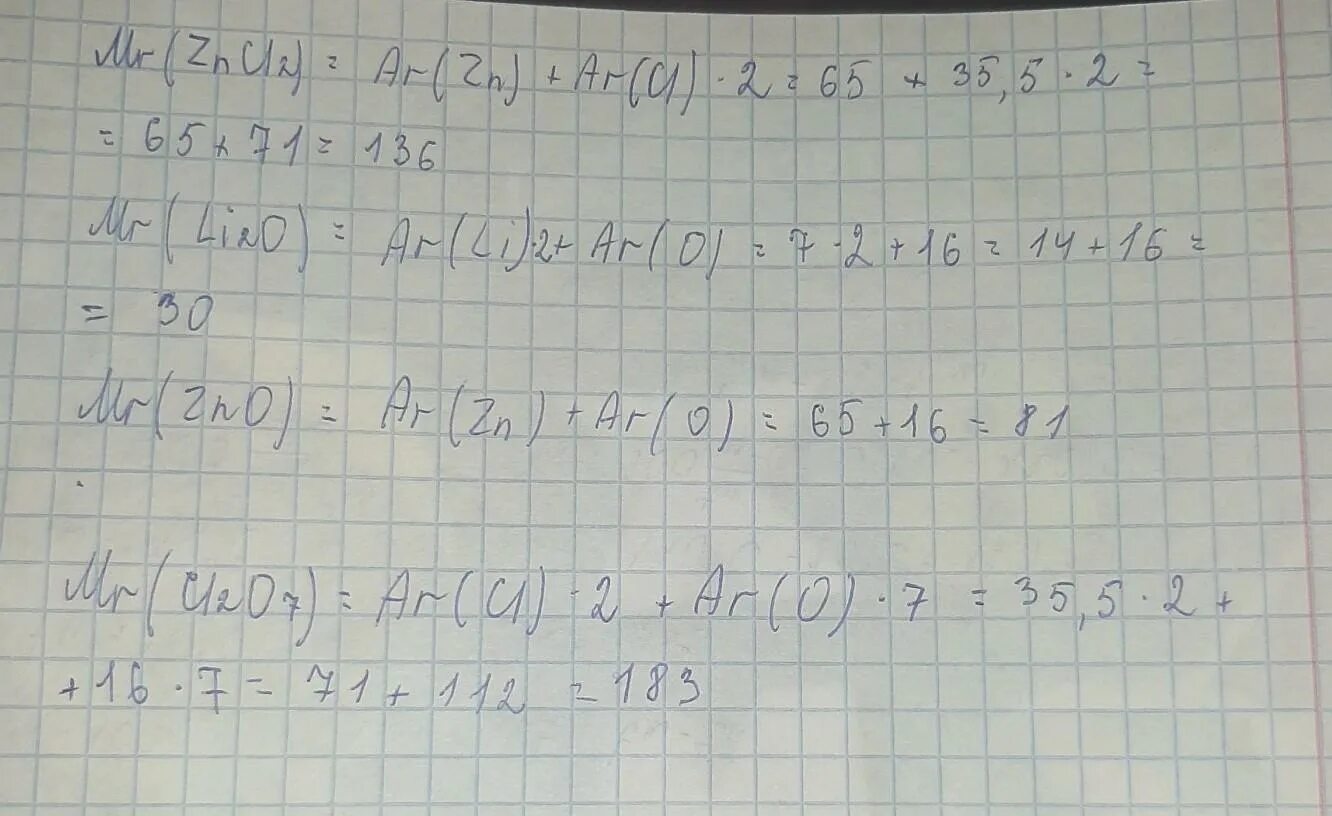 Mr(ZnCl2) = Ar(Zn) + Ar(Cl) · 2 = 65 + 35,5 · 2 =
= 65 + 71 = 136
Mr(Li2O) = Ar(Li)·2+ Ar(O) = 7 · 2 + 16 = 14 + 16 =
= 30
Mr(ZnO) = Ar(Zn) + Ar(O) = 65 + 16 = 81
Mr(Cl2O7) = Ar(Cl) · 2 + Ar(O) · 7 = 35,5 · 2 +
+ 16 · 7 = 71 + 112 = 183